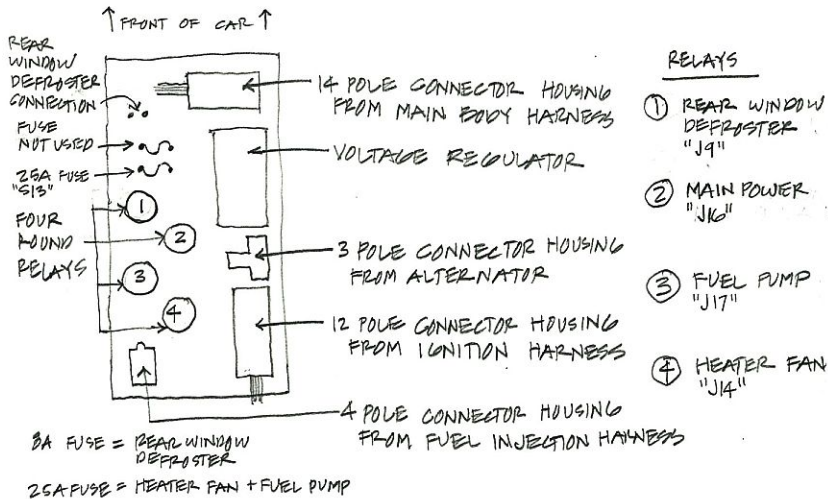 FRONT OF CAR
REAR
WINDOW
DEFROSTER
CONNECTION
FUSE
NOT USED
25A FUSE
"S13"
FOUR
ROUND
RELAYS
1
2
3
4
14 POLE CONNECTOR HOUSING
FROM MAIN BODY HARNESS
VOLTAGE REGULATOR
3 POLE CONNECTOR HOUSING
FROM ALTERNATOR
12 POLE CONNECTOR HOUSING
FROM IGNITION HARNESS
4 POLE CONNECTOR HOUSING
FROM FUEL INJECTION HARNESS
RELAYS
1 REAR WINDOW
DEFROSTER
"J9"
2 MAIN POWER
"J16"
3 FUEL PUMP
"J17"
4 HEATER FAN
"J14"
8A FUSE = REAR WINDOW
DEFROSTER
25A FUSE = HEATER FAN + FUEL PUMP